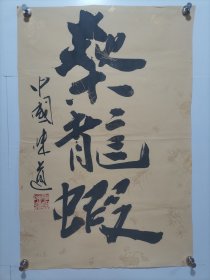 龍蝦
中國味道